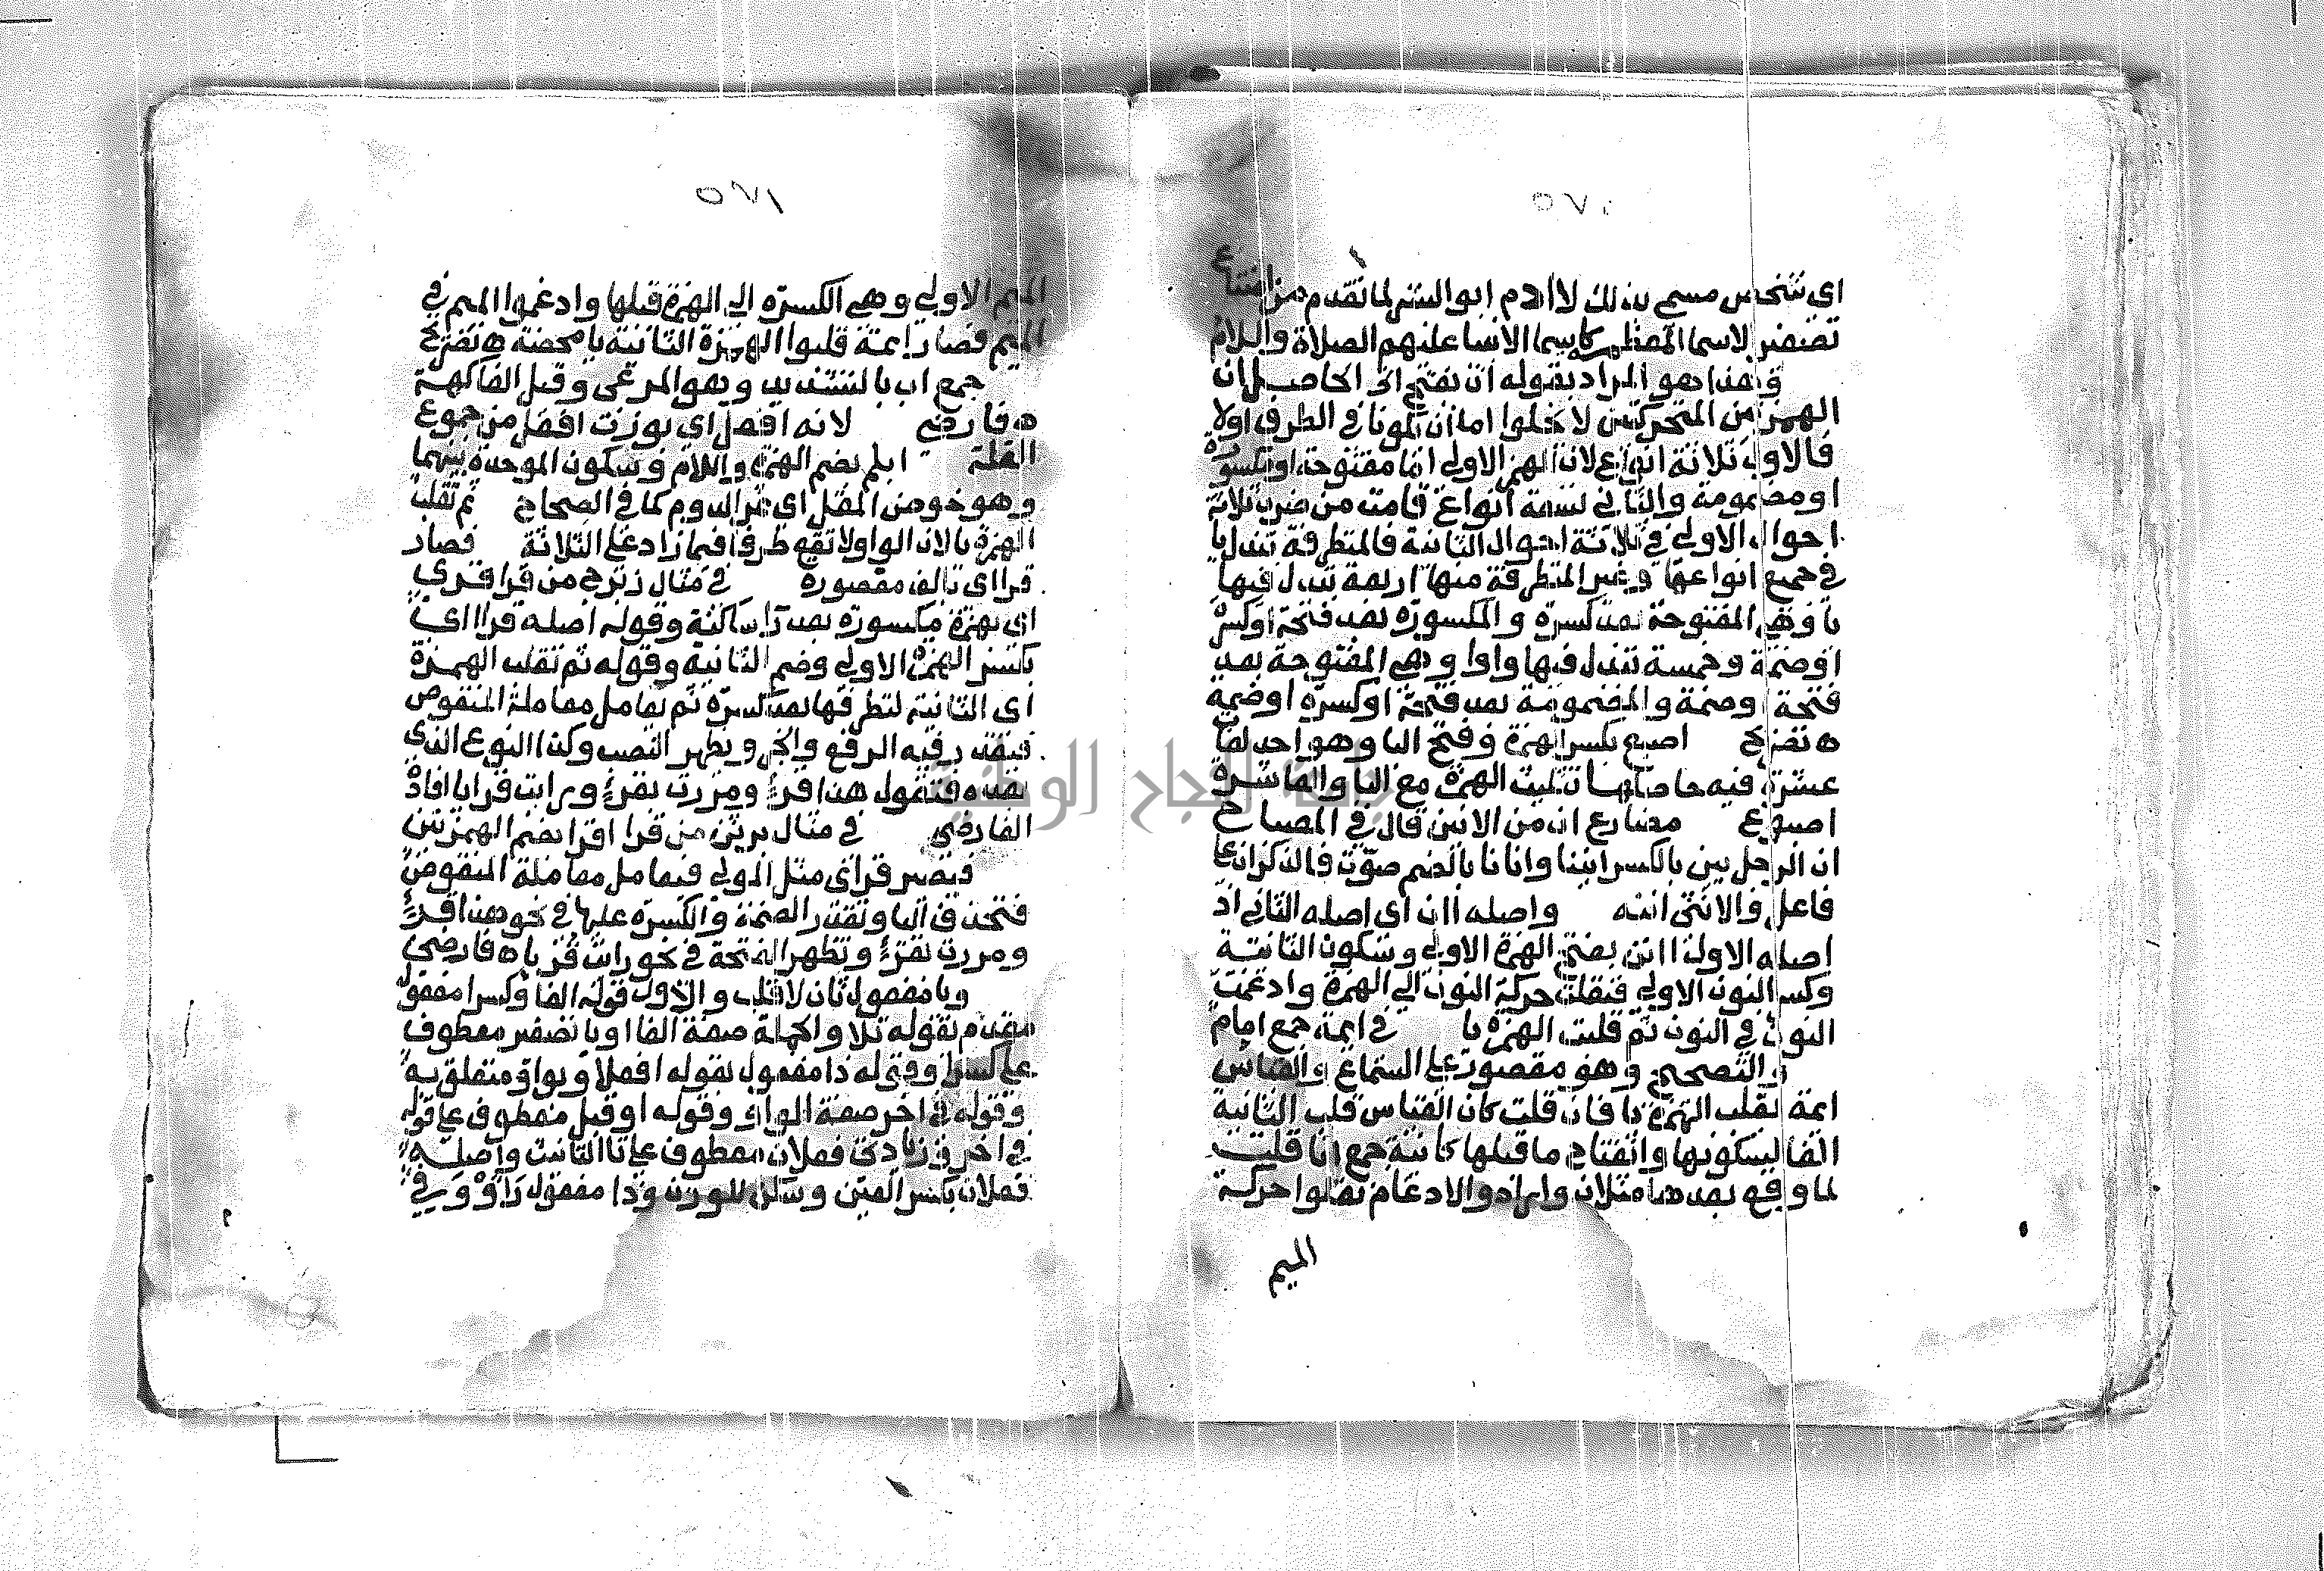 ٥٧٠
اي شخص مسمي بذلك لا ادم ابو البشر لما تقدم من امتناع
تصغير الاسما المعظمة كاسما الانبيا عليهم الصلاة والسلام
وهذا هو المراد بقوله ان يفتح الخ الحاصل ان
الهمزتين المتحركتين لا يخلوا اما ان تكونا في الطرف اولا
فالاول ثلاثة انواع لان الهمز الاولي اما مفتوحة او مكسورة
او مضمومة والثاني تسعة انواع قامت من ضرب ثلاثة
احوال الاولي في ثلاثة احوال الثانية فالمتطرفة تبدل يا
في جميع انواعها وغير المتطرفة منها اربعة تبدل فيها
يا وهي المفتوحة بعد كسرة والمكسورة بعد فتحة او كسرة
او ضمة وخمسة تبدل فيها واوا وهي المفتوحة بعد
فتحة او ضمة والمضمومة بعد فتحة او كسرة او ضمة
ه تصريح اصبع بكسر الهمزة وفتح البا وهو احد لغات
عشرة فيه حاصلها تثليث الهمزة مع البا والعاشرة
اصبوع مضارع ان من الانين قال في المصباح
ان الرجل يين بالكسر انينا وانانا بالضم صوت فالذكر ان علي
فاعل والانثي انثه واصله اان اي اصله الثاني اذ
اصله الاول اانن بفتح الهمزة الاولي وسكون الثانية
وكسر النون الاولي فنقلت حركة النون الي الهمزة وادغمت
النون في النون ثم قلبت الهمزة يا في ايمة جمع امام
والتصحيح وهو مقصور علي السماع والقياس
ايمة بقلب الهمزة يا فان قلت كان القياس قلب الثانية
الفا لسكونها وانفتاح ما قبلها كانية جمع انا قلت
لما وقع بعدها مثلان وارادوا الادغام نقلوا حركة
الميم
٥٧١
الميم الاولي وهي الكسرة الي الهمزة قبلها وادغموا الميم في
الميم فصار ايمة قلبوا الهمزة الثانية يا محضة ه تصريح
جمع اب بالتشديد وهو المرعي وقيل الفاكهة
ه فارضي لانه افعل اي بوزن افعل من جموع
القلة ابلم بضم الهمزة واللام وسكون الموحدة بينهما
وهو خوص المقل اي ثمر الدوم كما في الصحاح ثم تقلب
الهمزة يا لان الواو لا تقع طرفا فيما زاد علي الثلاثة فصار
قرا اي بالف مقصورة في مثال زبرج من قرا قرءي
اي بهمزة مكسورة بعد را ساكنة وقوله اصله قرا اي
بكسر الهمزة الاولي وضم الثانية وقوله ثم تقلب الهمزة
اي الثانية لتطرفها بعد كسرة ثم يعامل معاملة المنقوص
فيقدر فيه الرفع والجر ويظهر النصب وكذا النوع الذي
بعده فتقول هذا قرء ومررت بقرء ورايت قرايا افاده
الفارضي في مثال برثن من قرا اقرا بضم الهمزتين
فيصير قراي مثل المولي فيعامل معاملة المنقوص
فتحذف اليا وتقدر الضمة والكسرة عليها في نحو هذا قرء
ومررت بقرء وتظهر الفتحة في نحو رايت قرءيا ه فارضي
ويا مفعول ثان لاقلب والاول قوله الفا وكسرا مفعول
مقدم بقوله تلا والجملة صفة الفا او يا تصغير معطوف
علي كسرا وقوله ذا مفعول بقوله افعلا وبواو متعلق به
وقوله في اخر صفة الواو وقوله او قبل معطوف علي قوله
في اخر وزيادتي فعلان معطوف علي تا التانيث واصله
فعلان بكسر العين وسكن للوزن وذا مفعول راوا وفي